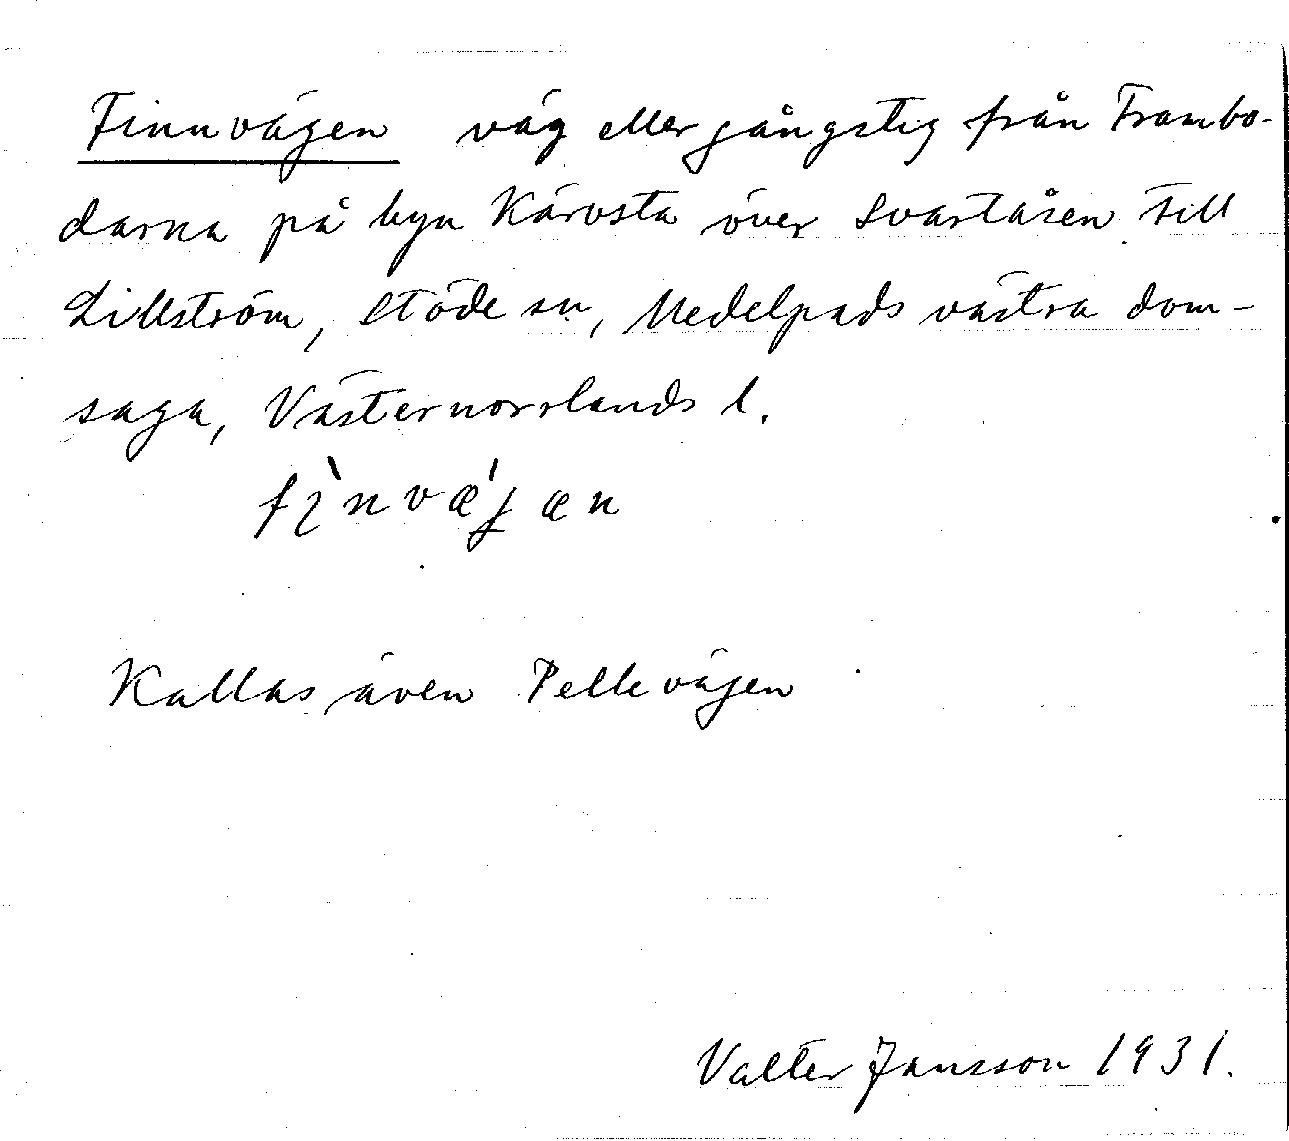 Finnvägen väg eller gångstig från Frambo-
darna på byn Kärvsta över Svartåsen till
Lillström, Stöde sn, Medelpads västra dom-
saga, Västernorrlands l.
fì̖nvæ̍jæn
Kallas även Pellevägen
Valter Jansson 1931.